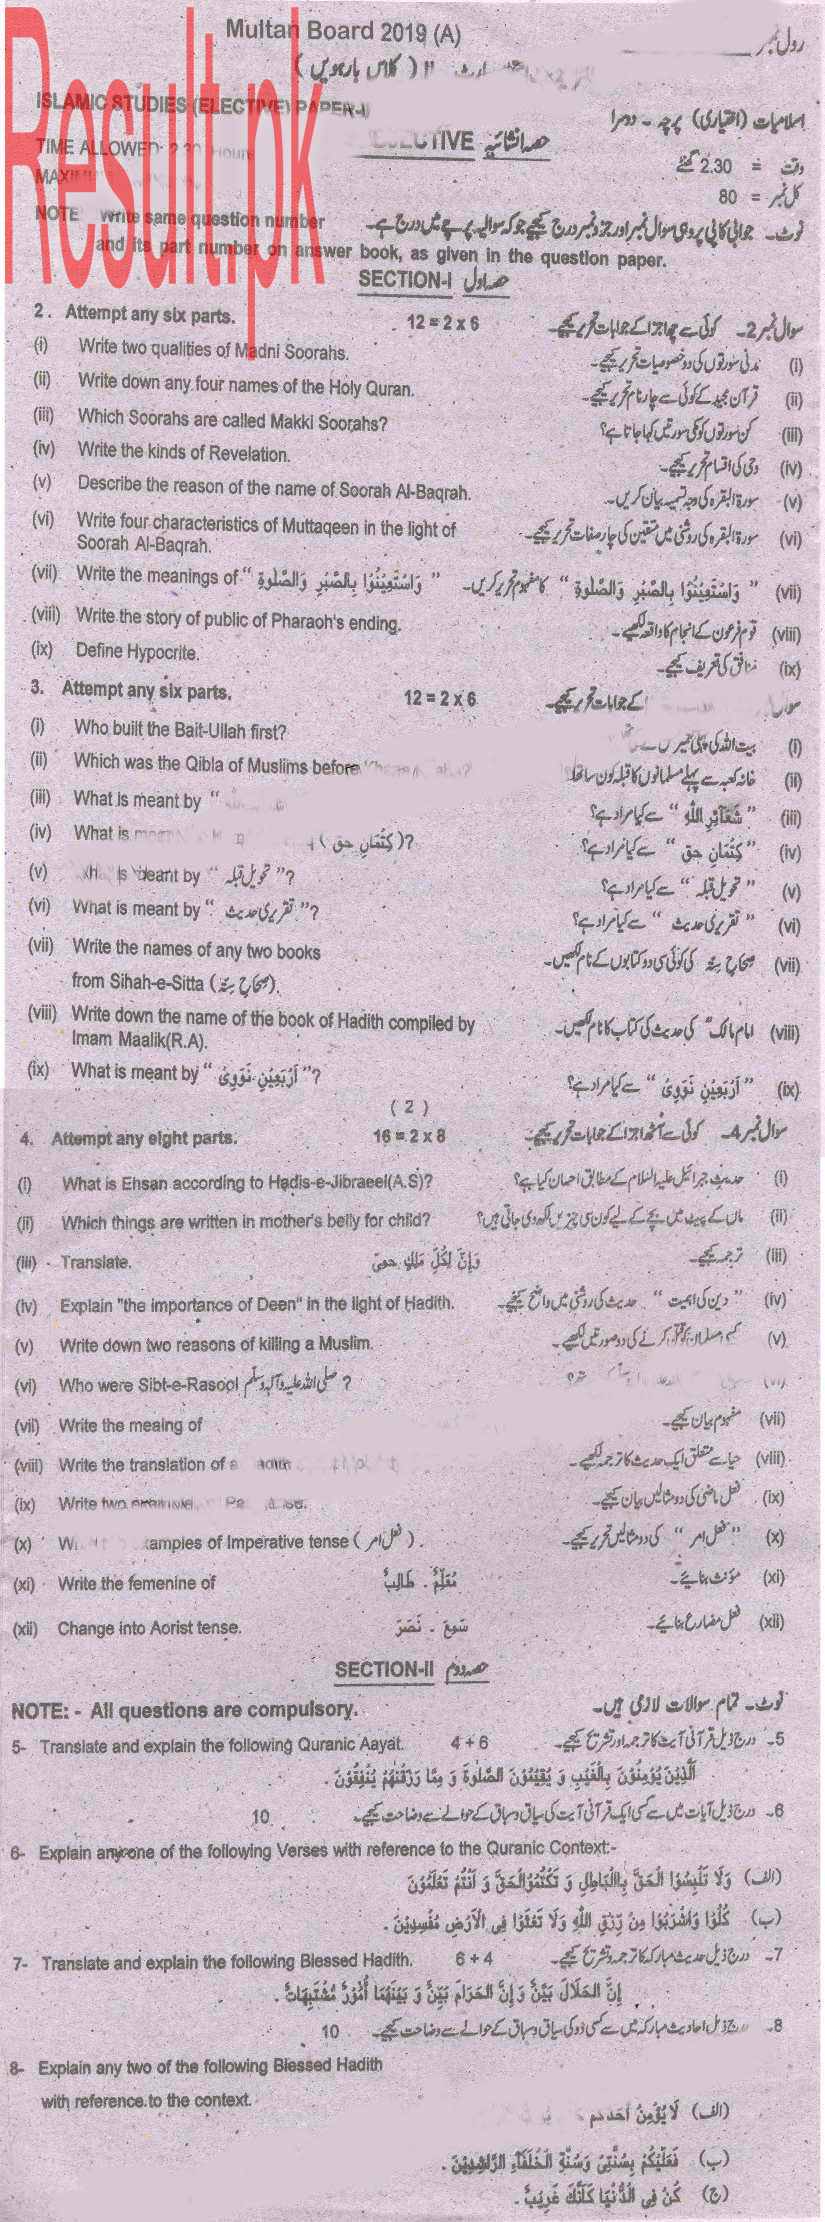 Multan Board 2019 (A)
رول نمبر
( کلاس بارہویں )
ISLAMIC STUDIES (ELECTIVE) PAPER-I
اسلامیات (اختیاری) پرچہ - دوسرا
حصہ انشائیہ
TIME ALLOWED: 2.30 Hours
وقت = 2.30 گھنٹے
کل نمبر = 80
NOTE Write same question number
and its part number on answer book, as given in the question paper.
نوٹ۔ جوابی کاپی پر وہی سوال نمبر اور جزو نمبر درج کیجیے جو کہ سوالیہ پرچے میں درج ہے۔
SECTION-I حصہ اول
2. Attempt any six parts. 12 = 2 x 6 سوال نمبر 2۔ کوئی سے چھ اجزا کے جوابات تحریر کیجیے۔
(i) Write two qualities of Madni Soorahs. (i) مدنی سورتوں کی دو خصوصیات تحریر کیجیے۔
(ii) Write down any four names of the Holy Quran. (ii) قرآن مجید کے کوئی سے چار نام تحریر کیجیے۔
(iii) Which Soorahs are called Makki Soorahs? (iii) کن سورتوں کو مکی سورتیں کہا جاتا ہے؟
(iv) Write the kinds of Revelation. (iv) وحی کی اقسام تحریر کیجیے۔
(v) Describe the reason of the name of Soorah Al-Baqrah. (v) سورۃ البقرہ کی وجہ تسمیہ بیان کریں۔
(vi) Write four characteristics of Muttaqeen in the light of Soorah Al-Baqrah. (vi) سورۃ البقرہ کی روشنی میں متقین کی چار صفات تحریر کیجیے۔
(vii) Write the meanings of " وَاسْتَعِيْنُوْا بِالصَّبْرِ وَالصَّلٰوةِ " (vii) " وَاسْتَعِيْنُوْا بِالصَّبْرِ وَالصَّلٰوةِ " کا مفہوم تحریر کریں۔
(viii) Write the story of public of Pharaoh's ending. (viii) قوم فرعون کے انجام کا واقعہ لکھیے۔
(ix) Define Hypocrite. (ix) منافق کی تعریف کیجیے۔
3. Attempt any six parts. 12 = 2 x 6 کے جوابات تحریر کیجیے۔
(i) Who built the Bait-Ullah first? (i) بیت اللہ کی پہلی تعمیر
(ii) Which was the Qibla of Muslims before (ii) خانہ کعبہ سے پہلے مسلمانوں کا قبلہ کون سا تھا
(iii) What is meant by " (iii) " شَعَآئِرِ اللّٰهِ " سے کیا مراد ہے؟
(iv) What is (كِتْمَانِ حق)? (iv) " كِتْمَانِ حق " سے کیا مراد ہے؟
(v) meant by " تحویل قبلہ "? (v) " تحویل قبلہ " سے کیا مراد ہے؟
(vi) What is meant by " تقریری حدیث "? (vi) " تقریری حدیث " سے کیا مراد ہے؟
(vii) Write the names of any two books from Sihah-e-Sitta (صحاح ستہ). (vii) صحاح ستہ کی کوئی سی دو کتابوں کے نام لکھیں۔
(viii) Write down the name of the book of Hadith compiled by Imam Maalik(R.A). (viii) امام مالکؒ کی حدیث کی کتاب کا نام لکھیں۔
(ix) What is meant by " اَرْبَعِيْنِ نَوَوِىْ "? (ix) " اَرْبَعِيْنِ نَوَوِىْ " سے کیا مراد ہے؟
( 2 )
4. Attempt any eight parts. 16 = 2 x 8 سوال نمبر 4۔ کوئی سے آٹھ اجزا کے جوابات تحریر کیجیے۔
(i) What is Ehsan according to Hadis-e-Jibraeel(A.S)? (i) حدیث جبرائیل علیہ السلام کے مطابق احسان کیا ہے؟
(ii) Which things are written in mother's belly for child? (ii) ماں کے پیٹ میں بچے کے لیے کون سی چیزیں لکھ دی جاتی ہیں؟
(iii) Translate. وَاِنَّ لِكُلِّ مَلِكٍ حمىً (iii) ترجمہ کیجیے۔
(iv) Explain "the importance of Deen" in the light of Hadith. (iv) " دین کی اہمیت " حدیث کی روشنی میں واضح کیجیے۔
(v) Write down two reasons of killing a Muslim. (v) کسی مسلمان کو قتل کرنے کی دو صورتیں لکھیے۔
(vi) Who were Sibt-e-Rasool صلی اللہ علیہ وآلہ وسلم ?
(vii) Write the meaing of (vii) مفہوم بیان کیجیے۔
(viii) Write the translation of a (viii) حیا سے متعلق ایک حدیث کا ترجمہ لکھیے۔
(ix) Write two (ix) فعل ماضی کی دو مثالیں بیان کیجیے۔
(x) amples of Imperative tense (فعل امر). (x) " فعل امر " کی دو مثالیں تحریر کیجیے۔
(xi) Write the femenine of مُعَلِّمٌ . طَالِبٌ (xi) مؤنث بنائیے۔
(xii) Change into Aorist tense. سَمِعَ . نَصَرَ (xii) فعل مضارع بنائیے۔
SECTION-II حصہ دوم
NOTE: - All questions are compulsory. نوٹ۔ تمام سوالات لازمی ہیں۔
5- Translate and explain the following Quranic Aayat. 4 + 6 5۔ درج ذیل قرآنی آیت کا ترجمہ اور تشریح کیجیے۔
الَّذِيْنَ يُؤْمِنُوْنَ بِالْغَيْبِ وَ يُقِيْمُوْنَ الصَّلٰوةَ وَ مِمَّا رَزَقْنٰهُمْ يُنْفِقُوْنَ .
6۔ درج ذیل آیات میں سے کسی ایک قرآنی آیت کی سیاق و سباق کے حوالے سے وضاحت کیجیے۔ 10
6- Explain anyone of the following Verses with reference to the Quranic Context:-
(الف) وَلَا تَلْبِسُوا الْحَقَّ بِاالْبَاطِلِ وَ تَكْتُمُوْالْحَقَّ وَ اَنْتُمْ تَعْلَمُوْنَ
(ب) كُلُوْا وَاشْرَبُوْا مِنْ رِّزْقِ اللّٰهِ وَلَا تَعْثَوْا فِى الْاَرْضِ مُفْسِدِيْنَ .
7- Translate and explain the following Blessed Hadith. 6 + 4 7۔ درج ذیل حدیث مبارکہ کا ترجمہ و تشریح کیجیے۔
اِنَّ الْحَلَالَ بَيِّنٌ وَ اِنَّ الحَرَامَ بَيِّنٌ وَ بَيْنَهُمَا اُمُوْرٌ مُشْتَبِهَاتٌ .
8۔ درج ذیل احادیث مبارکہ میں سے کسی دو کی سیاق و سباق کے حوالے سے وضاحت کیجیے۔ 10
8- Explain any two of the following Blessed Hadith
with reference to the context.
(الف) لَا يُؤْمِنُ اَحَدُكُم
(ب) فَعَلَيْكُمْ بِسُنَّتِىْ وَسُنَّةِ الْخُلَفَآءِ الرَّاشِدِيْنَ .
(ج) كُنْ فِى الدُّنْيَا كَاَنَّكَ غَرِيْبٌ .
Result.pk